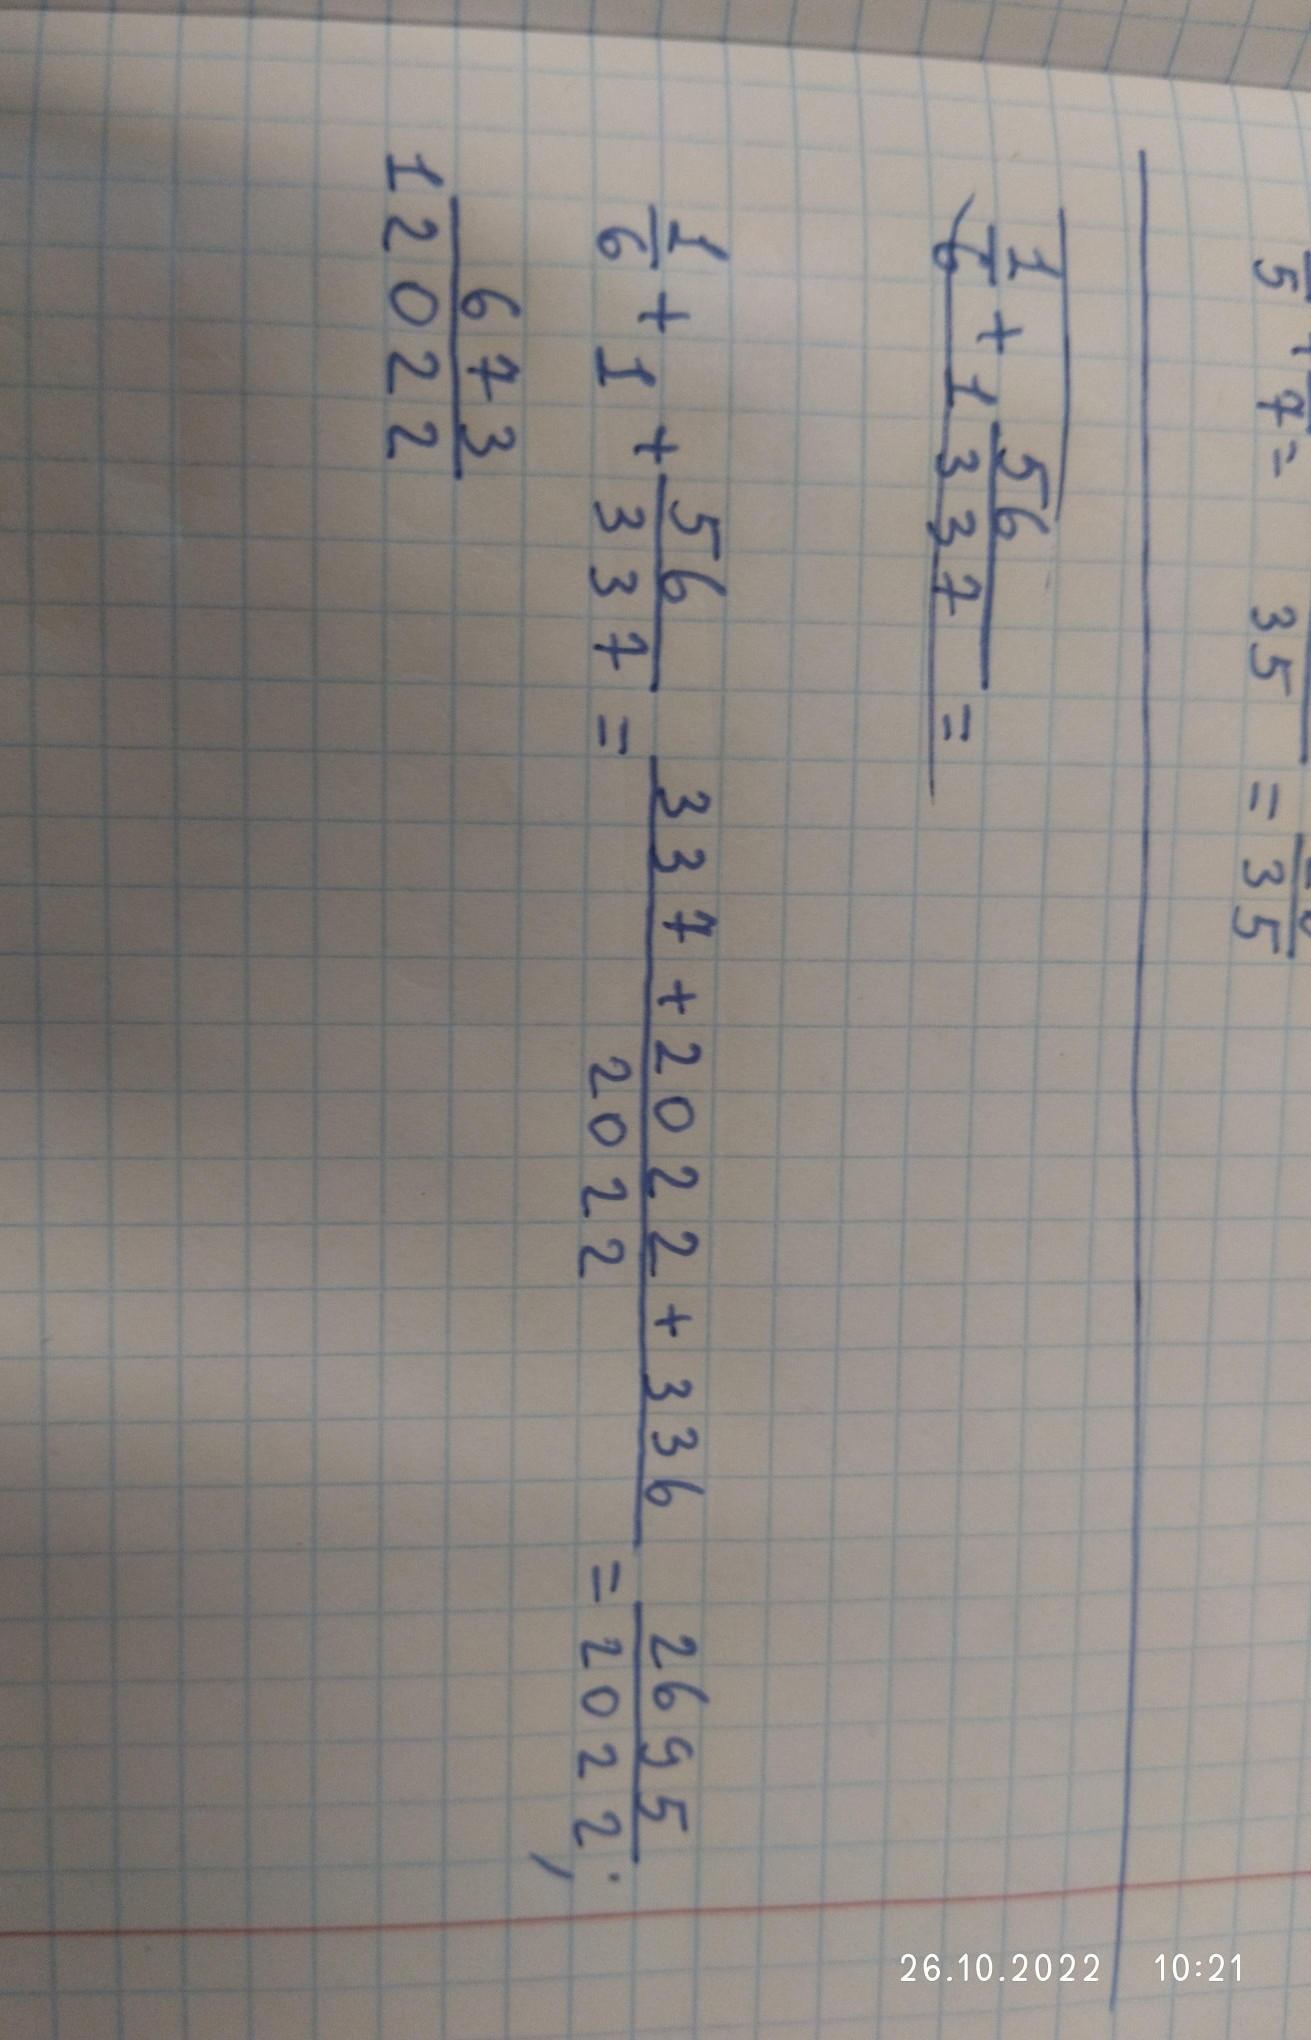 1/5 + 1/7 = 35 = 35
1/6 + 1 56/337 =
1/6 + 1 + 56/337 = (337 + 2022 + 336)/2022 = 2695/2022;
1 673/2022
26.10.2022 10:21